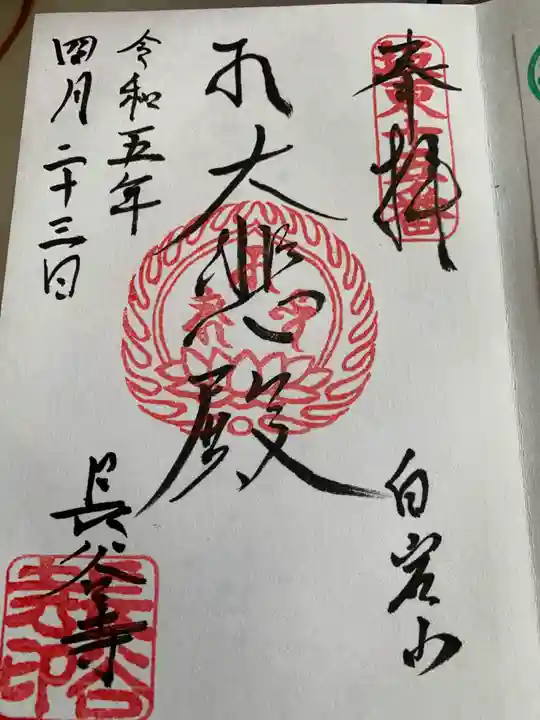 奉拝
坂東十五番
白岩山
大悲殿
令和五年
四月二十三日
長谷寺